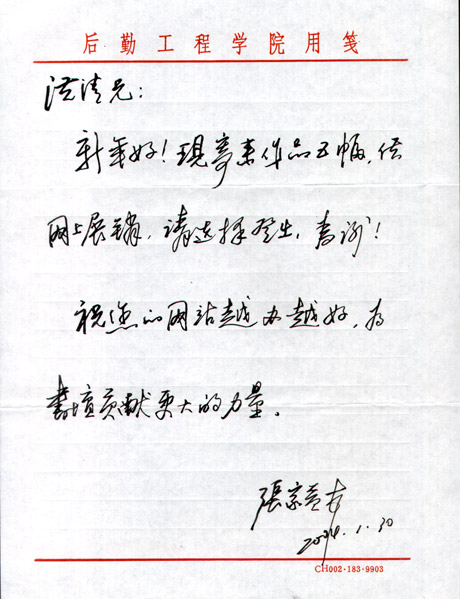 后勤工程学院用笺
洪清兄：
新年好！现寄来作品五幅，供
网上展销，请选择登出，为谢！
祝您的网站越办越好，为
書坛贡献更大的力量。
張宗
2004.1.30
CH002·183·9903